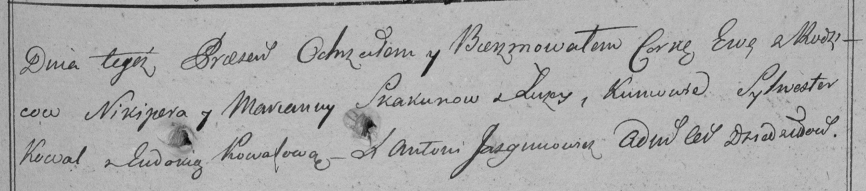 Dnia tegoż Præsens Ochrzciłem y Bierzmowałem Corkę Ewę z Rodzi-
cow Nikipera y Marianny Skakunow z Łuzy, Kumowie Sylwester
Kowal z Eudokią Kowalową – X Antoni Jazgunowicz Dziedziłow.